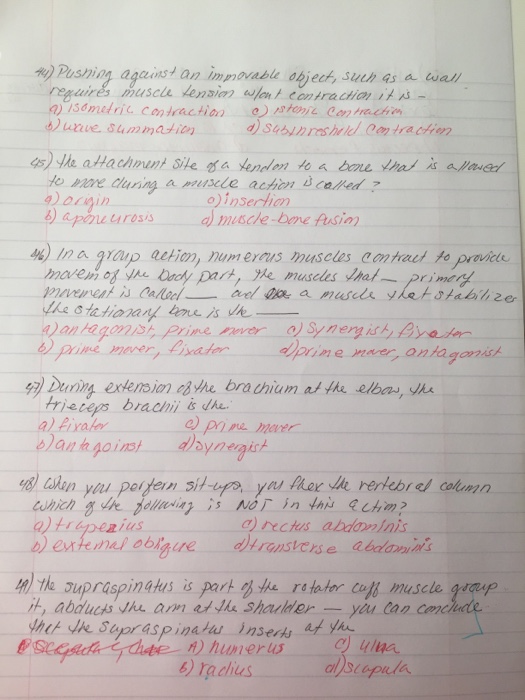 44) Pushing against an immovable object, such as a wall
requires muscle tension w/out contraction it is -
a) isometric contraction c) istonic contraction
b) wave summation d) subthreshold contraction
45) the attachment site of a tendon to a bone that is allowed
to move during a muscle action is called?
a) origin c) insertion
b) aponeurosis d) muscle-bone fusion
46) In a group action, numerous muscles contract to provide
movem of the body part, the muscles that — primary
movement is called — and a muscle that stabilizes
the stationary bone is the —
a) antagonist, prime mover c) Synergist, fixator
b) prime mover, fixator d) prime mover, antagonist
47) During extension of the brachium at the elbow, the
trieceps brachii is the:
a) fixator c) prime mover
b) antagoinst d) synergist
48) When you perform sit-ups, you flex the vertebral column
which of the following is NOT in this action?
a) trapezius c) rectus abdominis
b) external oblique d) transverse abdominis
49) the supraspinatus is part of the rotator cuff muscle group
it, abducts the arm at the shoulder — you can conclude
that the supraspinatus inserts at the
a) humerus c) ulna
b) radius d) scapula